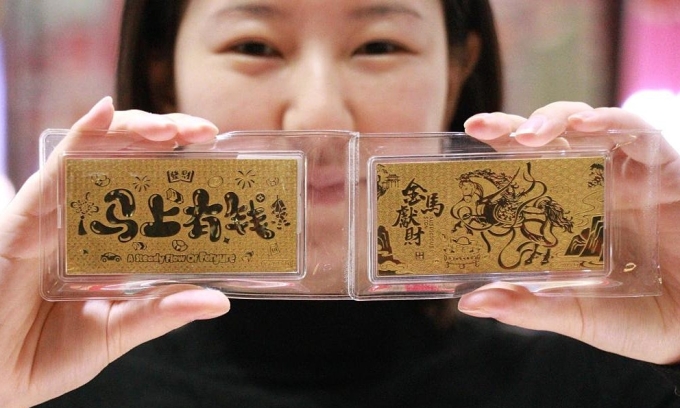 马上有钱
A Steady Flow Of Fortune
金馬
獻財